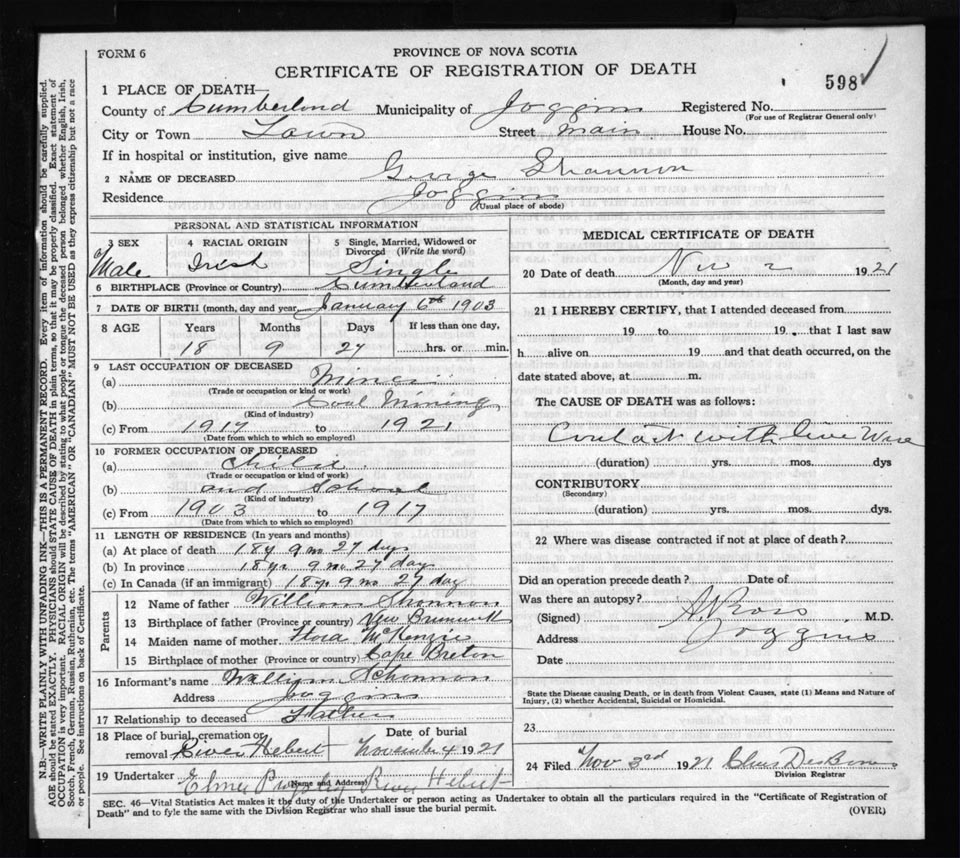 FORM 6
PROVINCE OF NOVA SCOTIA
CERTIFICATE OF REGISTRATION OF DEATH
598
1 PLACE OF DEATH—
County of Cumberland Municipality of Joggins Registered No.
(For use of Registrar General only)
City or Town Town Street Main House No.
If in hospital or institution, give name
2 NAME OF DECEASED George Shannon
Residence Joggins
(Usual place of abode)
PERSONAL AND STATISTICAL INFORMATION
3 SEX Male
4 RACIAL ORIGIN Irish
5 Single, Married, Widowed or Divorced (Write the word) Single
6 BIRTHPLACE (Province or Country) Cumberland
7 DATE OF BIRTH (month, day and year) January 6th 1903
8 AGE Years Months Days If less than one day,
18 9 27 hrs. or min.
9 LAST OCCUPATION OF DECEASED
(a) Miner
(Trade or occupation or kind of work)
(b) Coal Mining
(Kind of industry)
(c) From 1917 to 1921
(Date from which to which so employed)
10 FORMER OCCUPATION OF DECEASED
(a)
(Trade or occupation or kind of work)
(b) and School
(Kind of industry)
(c) From 1903 to 1917
(Date from which to which so employed)
11 LENGTH OF RESIDENCE (In years and months)
(a) At place of death 18 y 9 mo 27 days
(b) In province 18 yr 9 mo 27 day
(c) In Canada (if an immigrant) 18 yr 9 mo 27 day
Parents
12 Name of father William Shannon
13 Birthplace of father (Province or country) New Brunswick
14 Maiden name of mother Flora McKenzie
15 Birthplace of mother (Province or country) Cape Breton
16 Informant's name William Schonnon
Address Joggins
17 Relationship to deceased Father
18 Place of burial, cremation or removal River Hebert
Date of burial November 4 1921
19 Undertaker Elmer River Hebert
(Name and Address)
MEDICAL CERTIFICATE OF DEATH
20 Date of death Nov 2 1921
(Month, day and year)
21 I HEREBY CERTIFY, that I attended deceased from
19 to 19 that I last saw
h alive on 19 and that death occurred, on the
date stated above, at m.
The CAUSE OF DEATH was as follows:
Contact with live Wire
(duration) yrs. mos. dys
CONTRIBUTORY
(Secondary)
(duration) yrs. mos. dys.
22 Where was disease contracted if not at place of death?
Did an operation precede death? Date of
Was there an autopsy?
(Signed) A Ross M.D.
Address Joggins
Date
State the Disease causing Death, or in death from Violent Causes, state (1) Means and Nature of
Injury, (2) whether Accidental, Suicidal or Homicidal.
23
24 Filed Nov 3rd 1921
Division Registrar
SEC. 46—Vital Statistics Act makes it the duty of the Undertaker or person acting as Undertaker to obtain all the particulars required in the "Certificate of Registration of
Death" and to fyle the same with the Division Registrar who shall issue the burial permit.
(OVER)
N.B.—WRITE PLAINLY WITH UNFADING INK—THIS IS A PERMANENT RECORD. Every item of information should be carefully supplied.
AGE should be stated EXACTLY. PHYSICIANS should STATE CAUSE OF DEATH in plain terms, so that it may be properly classified. Exact statement of
OCCUPATION is very important. RACIAL ORIGIN will be described by stating to what people or tongue the deceased person belonged, whether English, Irish,
Scotch, French, German, Russian, Ruthenian, etc. The terms "AMERICAN" OR "CANADIAN" MUST NOT BE USED as they express citizenship but not a race
or people. See instructions on back of Certificate.